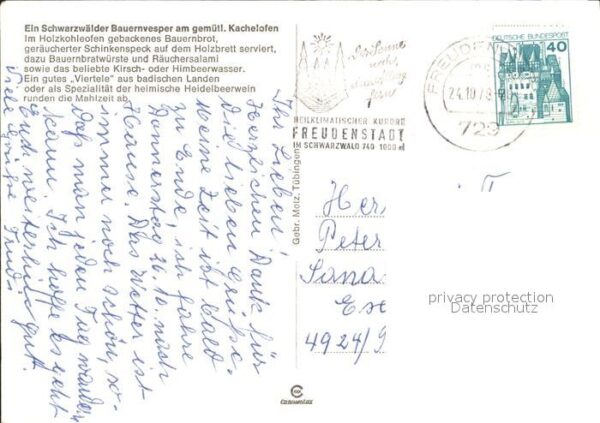 Ein Schwarzwälder Bauernvesper am gemütl. Kachelofen
Im Holzkohleofen gebackenes Bauernbrot,
geräucherter Schinkenspeck auf dem Holzbrett serviert,
dazu Bauernbratwürste und Räuchersalami
sowie das beliebte Kirsch- oder Himbeerwasser.
Ein gutes „Viertele" aus badischen Landen
oder als Spezialität der heimische Heidelbeerwein
runden die Mahlzeit ab.
Ihr Lieben!
Herzlichen Dank für
Die lieben Grüße.
Meine Zeit ist bald
zu Ende, ich fahre
Donnerstag 26.10. nach
Hause. Das Wetter ist
immer noch schön, so-
daß man jeden Tag wandern
kann. Ich hoffe es geht
Euch weiterhin gut.
Viele Grüße Trudi
Gebr. Metz, Tübingen
HEILKLIMATISCHER KURORT
FREUDENSTADT
IM SCHWARZWALD 740 1000 m
FREUDEN
24.10.78
729
DEUTSCHE BUNDESPOST
40
Her
Peter
Sana
4924/9
privacy protection
Datenschutz